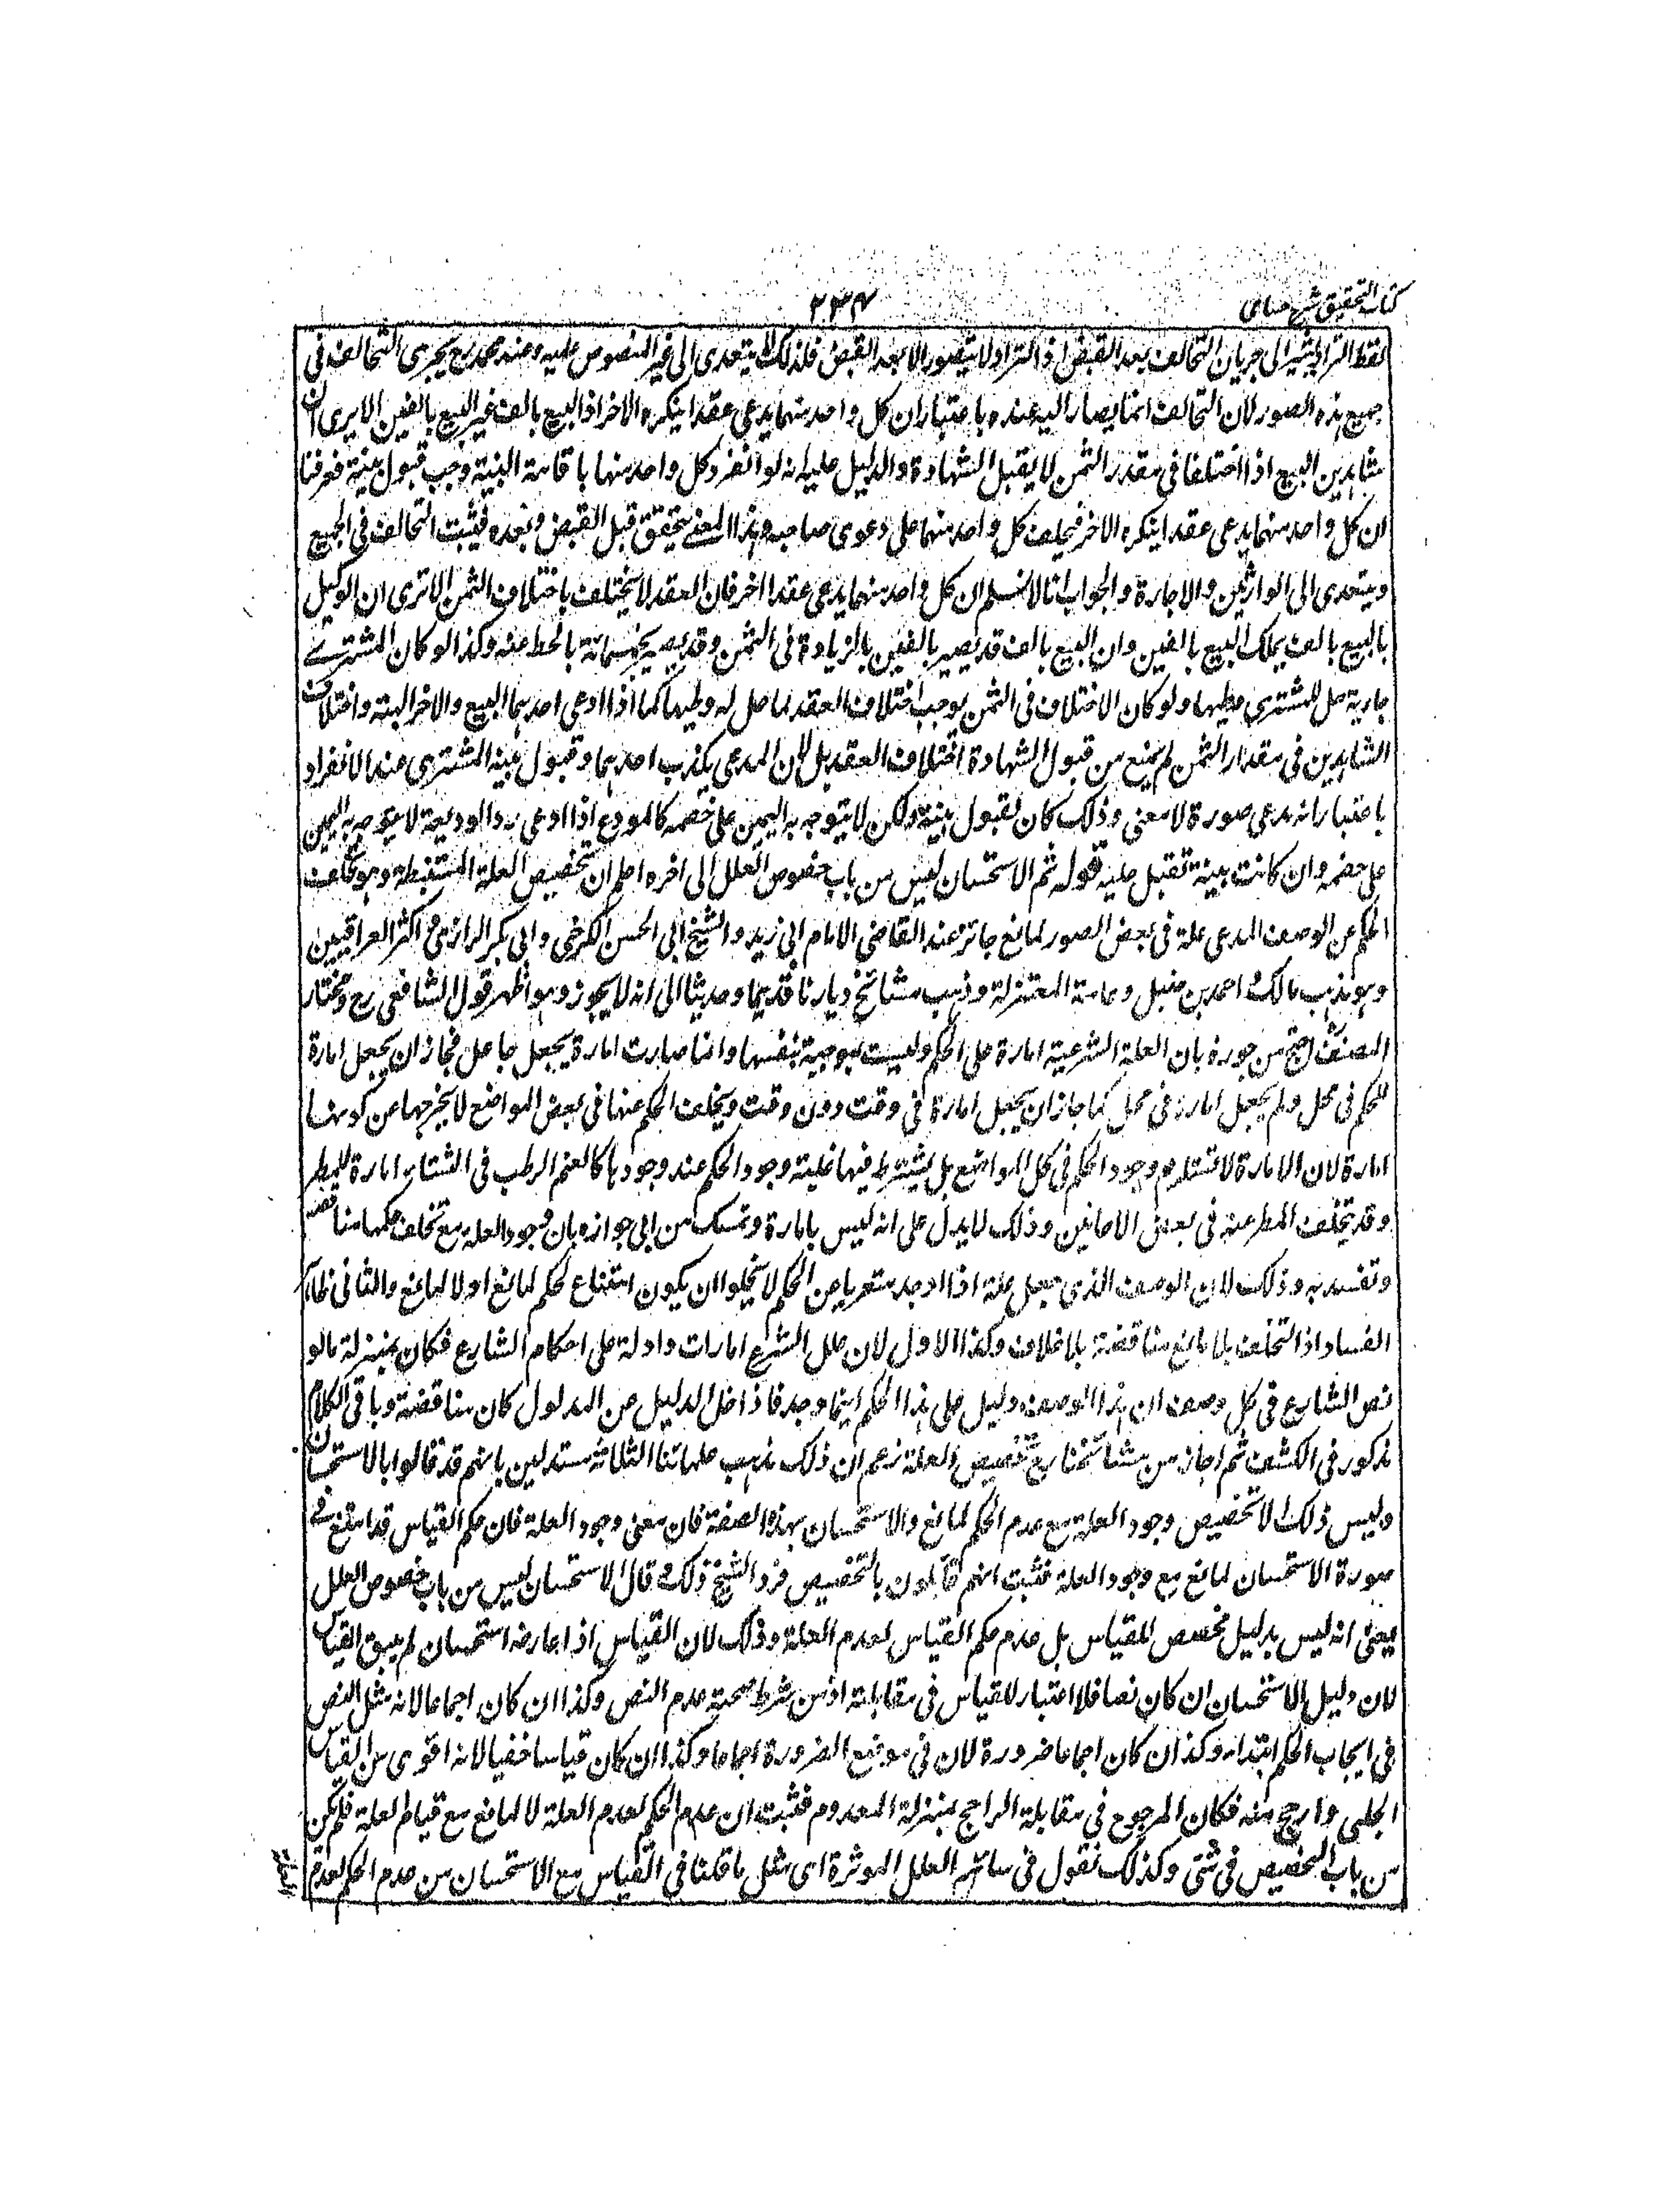 كتاب التحقيق شرح حسامى
٢٣٤
لفظ التراد يشير الى جريان التحالف بعد القبض اذ التراد لا يتصور الا بعد القبض فلذلك لا يتعدى الى غير المنصوص عليه وعند محمد رح يجرى التحالف فى
جميع هذه الصور لان التحالف انما يصار اليه عنده باعتبار ان كل واحد منهما يدعى عقدا ينكره الاخر اذ البيع بالف غير البيع بالفين الا يرى ان
شاهدين البيع اذا اختلفا فى مقدر الثمن لا يقبل الشهادة والدليل عليه انه لو انفرد كل واحد منهما باقامة البينة وجب قبول بينة فعرفنا
ان كل واحد منهما يدعى عقدا ينكره الاخر فيحلف كل واحد منهما على دعوى صاحبه وهذا المعنے يتحقق قبل القبض وبعده فيثبت التحالف فى الجميع
ويتعدى الى الوارثين والاجارة والجواب انا لا نسلم ان كل واحد منهما يدعى عقدا اخر فان العقد لا يختلف باختلاف الثمن الا ترى ان الوكيل
بالبيع بالف يملك البيع بالفين وان البيع بالف قد يصير بالفين بالزيادة فى الثمن وقد يصير بخمسمائة بالحط عنه وكذا لو كان المشترے
جارية حل للمشترى وطيها ولو كان الاختلاف فى الثمن يوجب اختلاف العقد لما حل له وطيها كما اذا ادعى احدهما البيع والاخر الهبة واختلاف
الشاهدين فى مقدار الثمن لم يمنع من قبول الشهادة اختلاف العقد بل لان المدعى يكذب احدهما وقبول بينة المشترى عند الانفراد
باعتبار انه مدعى صورة لا معنى وذلك كان لقبول بينة ولكن لا يتوجه به اليمين على خصمه كالمودع اذا ادعى رد الوديعة لا يتوجه به اليمين
على خصمه وان كانت بينة تقبل عليه قوله ثم الاستحسان ليس من باب خصوص العلل الى اخره اعلم ان تخصيص العلة المستنبطة وهو تخلف
الحكم عن الوصف المدعى علة فى بعض الصور لمانع جائز عند القاضى الامام ابى زيد والشيخ ابى الحسن الكرخى وابى بكر الرازى واكثر العراقيين
وهو مذهب مالك واحمد بن حنبل وعامة المعتزلة وذهب مشائخ ديارنا قديما وحديثا الى انه لا يجوز وهو اظهر قول الشافعى رح ومختار
المصنف احتج من جوزه بان العلة الشرعية امارة على الحكم وليست بموجبة بنفسها وانما صارت امارة بجعل جاعل فجاز ان يجعل امارة
للحكم فى محل ولم يجعل امارة فى محل كما جاز ان يجعل امارة فى وقت دون وقت وتخلف الحكم عنها فى بعض المواضع لا يخرجها عن كونها
امارة لان الامارة لا تستلزم وجود الحكم فى كل المواضع بل يشترط فيها غلبة وجود الحكم عند وجودها كالغيم الرطب فى الشتاء امارة للمطر
وقد يتخلف المطر عنه فى بعض الاحانين وذلك لا يدل على انه ليس بامارة وتمسك من ابى جوازه بان وجود العلة مع تخلف حكمها مناقضة
وتفسد به وذلك لان الوصف الذى جعل علة اذا وجد متعريا عن الحكم لا يخلو ان يكون امتناع الحكم لمانع او لا لمانع والثانى ظاهر
الفساد اذ التخلف بلا مانع مناقضة بلا خلاف وكذا الاول لان علل الشرع امارات وادلة على احكام الشارع فكان بمنزلة ما لو
نص الشارع فى كل وصف ان هذا الوصف دليل على هذا الحكم اينما وجد فاذا خلا الدليل عن المدلول كان مناقضة وباقى الكلام
مذكور فى الكشف ثم اجاز من مشائخنا رح تخصيص العلة زعم ان ذلك مذهب علمائنا الثلاثة مستدلين بانهم قد قالوا بالاستحسان
وليس ذلك الا تخصيص وجود العلة مع عدم الحكم لمانع والاستحسان بهذه الصفة فان معنى وجود العلة فان حكم القياس قد امتنع فے
صورة الاستحسان لمانع مع وجود العلة فثبت انهم قائلون بالتخصيص فرد الشيخ ذلك وقال الاستحسان ليس من باب خصوص العلل
يعنى انه ليس بدليل مخصص للقياس بل عدم حكم القياس لعدم العلة وذلك لان القياس اذا عارضه استحسان لم يبق القياس
لان دليل الاستحسان ان كان نصا فلا اعتبار للقياس فى مقابلته اذ من شرط صحته عدم النص وكذا ان كان اجماعا لانه مثل النص
فى ايجاب الحكم ابتداء وكذا ان كان اجماعا ضرورة لان فى موضع الضرورة اجماعا وكذا ان كان قياسا خفيا لانه اقوى من القياس
الجلى وارجح منه فكان المرجوع فى مقابلة الراجح بمنزلة المعدوم فثبت ان عدم الحكم لعدم العلة لا لمانع مع قيام العلة فلم يكن
من باب التخصيص فى شئ وكذلك نقول فى سائر العلل الموثرة اى مثل ما قلنا فى القياس مع الاستحسان من عدم الحكم لعدم
العلة